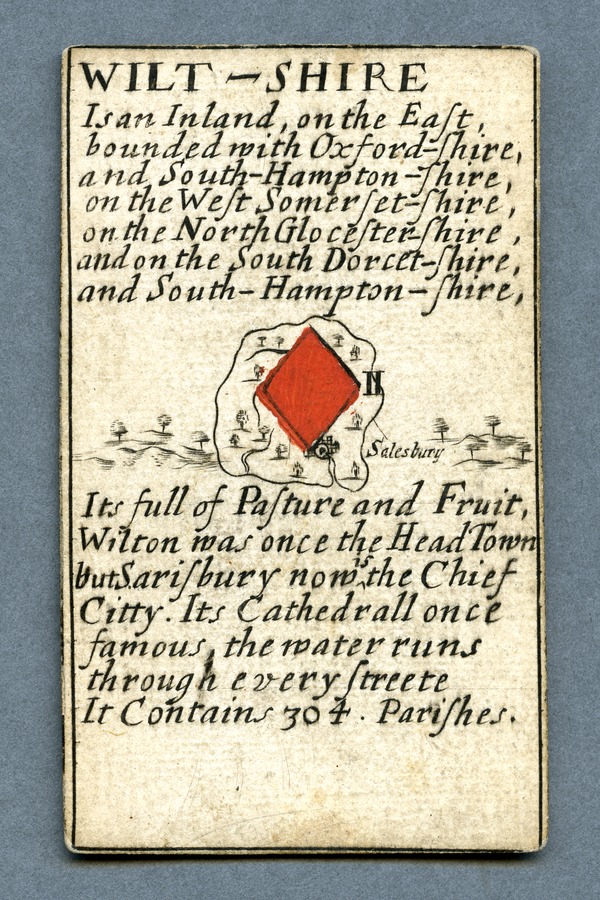 WILT-SHIRE
Is an Inland, on the Eaſt,
bounded with Oxford-ſhire,
and South-Hampton-ſhire,
on the Weſt Somerſet-ſhire,
on the North Gloceſter-ſhire,
and on the South Dorcet-ſhire,
and South-Hampton-ſhire,
N
Salesbury
Its full of Paſture and Fruit,
Wilton was once the Head Town
but Sariſbury now is the Chief
Citty. Its Cathedrall once
famous, the water runs
through every ſtreete
It Contains 304. Pariſhes.